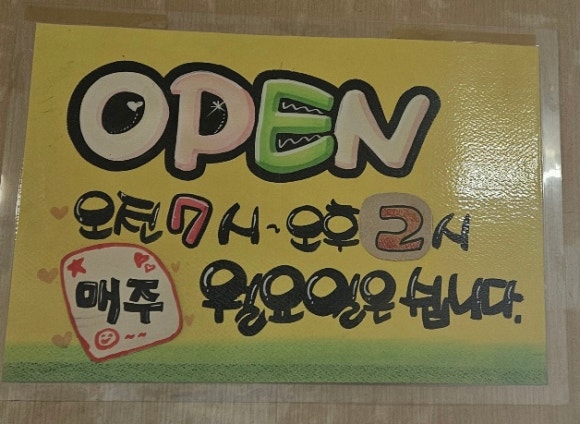 OPEN
오전 7시~오후 2시
매주 월요일은 쉽니다.